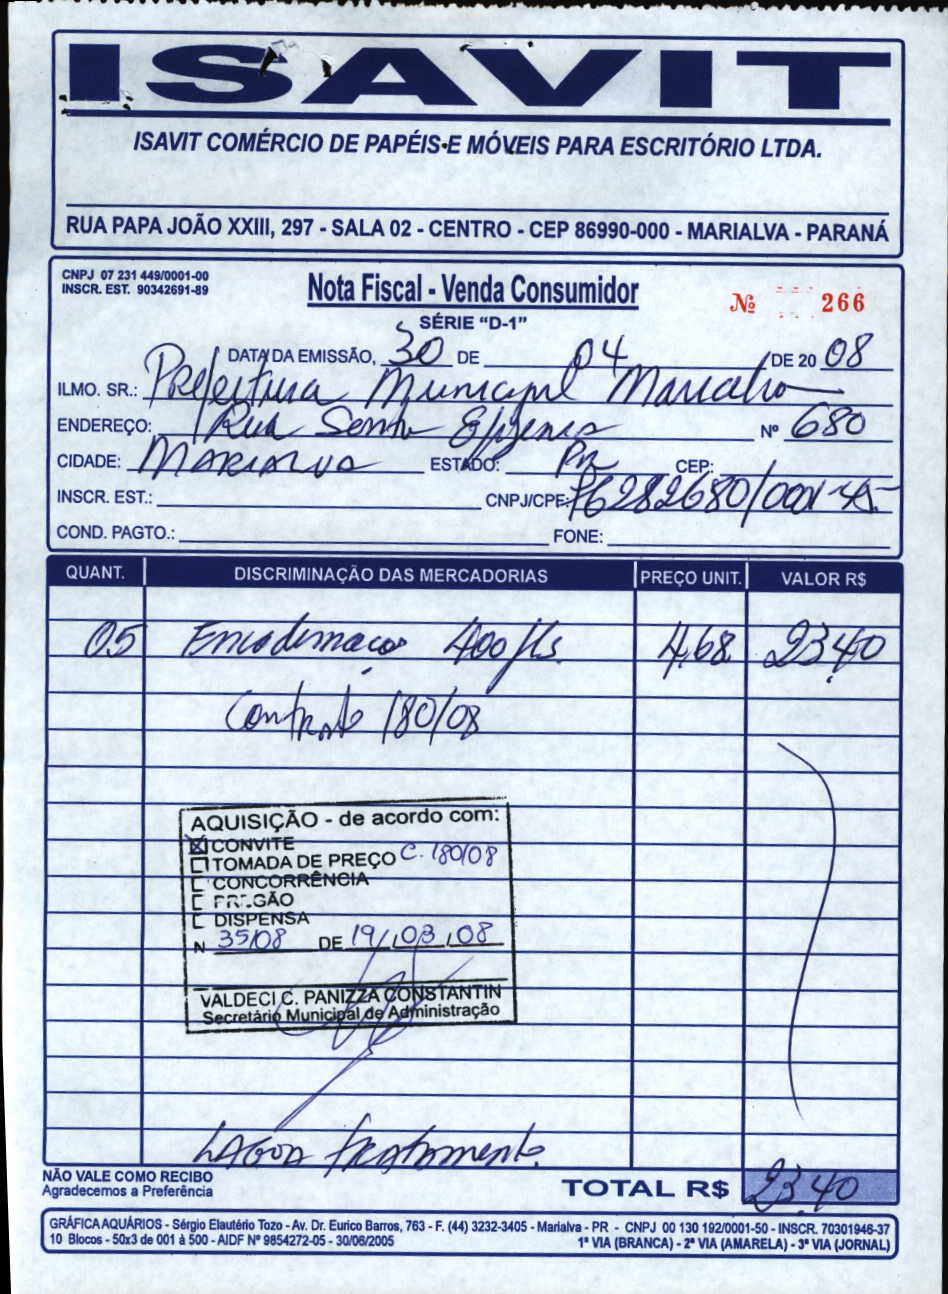 ISAVIT
ISAVIT COMÉRCIO DE PAPÉIS E MÓVEIS PARA ESCRITÓRIO LTDA.
RUA PAPA JOÃO XXIII, 297 - SALA 02 - CENTRO - CEP 86990-000 - MARIALVA - PARANÁ
CNPJ 07 231 449/0001-00
INSCR. EST. 90342691-89
Nota Fiscal - Venda Consumidor
Nº 266
SÉRIE "D-1"
DATA DA EMISSÃO, 30 DE 04 DE 20 08
ILMO. SR.: Prefeitura Municipal Marialva
ENDEREÇO: Rua Santa Efigenia Nº 680
CIDADE: MARIALVA ESTADO: Pr CEP:
INSCR. EST.: CNPJ/CPF: 76282680/0001-45
COND. PAGTO.: FONE:
QUANT. DISCRIMINAÇÃO DAS MERCADORIAS PREÇO UNIT. VALOR R$
05 Encadernaçoes 400 fls. 4,68 23,40
Contrato 180/08
AQUISIÇÃO - de acordo com:
CONVITE
TOMADA DE PREÇO C. 180/08
CONCORRÊNCIA
PREGÃO
DISPENSA
N 35/08 DE 19/03/08
VALDECI C. PANIZZA CONSTANTIN
Secretário Municipal de Administração
LAGOA tratamento.
NÃO VALE COMO RECIBO
Agradecemos a Preferência
TOTAL R$ 23,40
GRÁFICA AQUÁRIOS - Sérgio Elautério Tozo - Av. Dr. Eurico Barros, 763 - F. (44) 3232-3405 - Marialva - PR - CNPJ 00 130 192/0001-50 - INSCR. 70301946-37
10 Blocos - 50x3 de 001 à 500 - AIDF Nº 9854272-05 - 30/06/2005 1ª VIA (BRANCA) - 2ª VIA (AMARELA) - 3ª VIA (JORNAL)